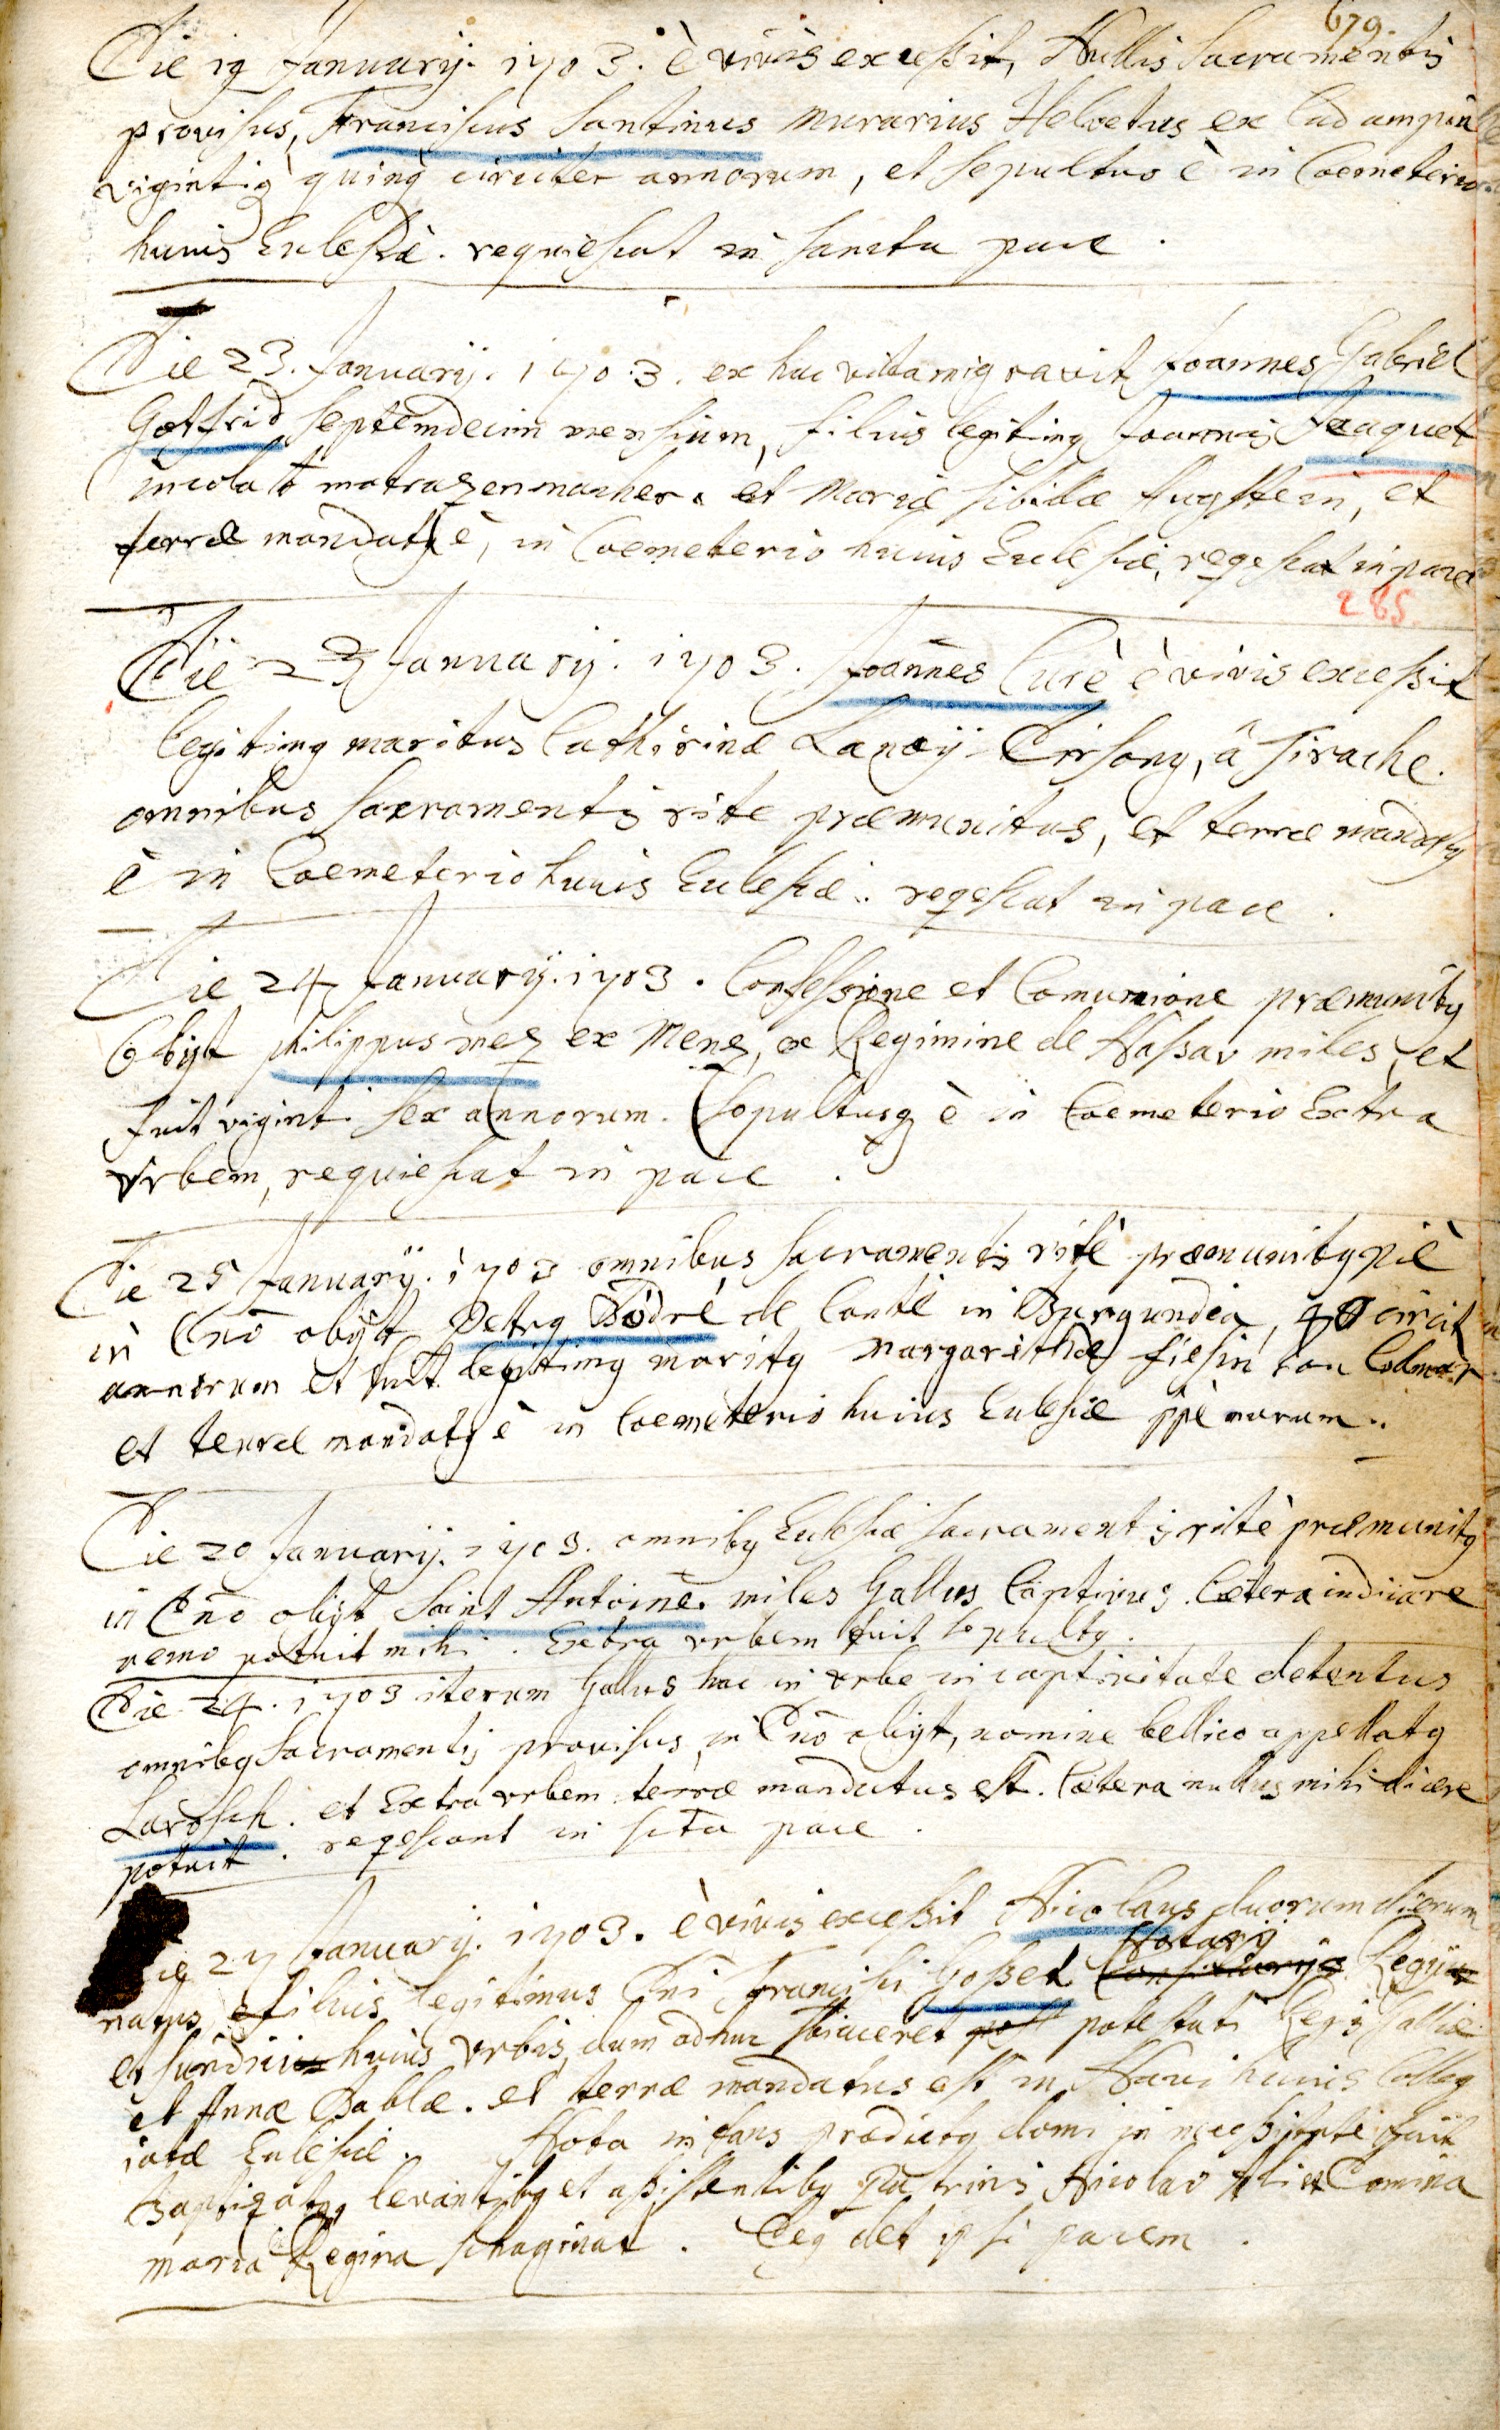 679.
Die 19 Januarij. 1703. è vivis excessit, Nullis sacramentis
provisus, Franciscus Santinus murarius Helvetus ex
vigintiq quinq circiter annorum, et sepultus è in Coemeterio
huius Eclesiæ. requiescat in sancta pace.
Die 23. Januarij. 1703. ex hac vita migravit Joannes Gabriel
Gotfrid septemdecim mensium, filius legitimq Joannis Jaquet
incola matrazenmacher. et Mariæ sibillæ Augstein, et
terræ mandatq è, in Coemeterio huius Eclesiæ, reqescat in pace
285
Die 23 Januarij. 1703. Joannes Curè è vivis excessit
legitimq maritus Catharinæ à sirache.
omnibus sacramentis rite præmunitus, et terræ mandatq
è in Coemeterio huius Eclesiæ. reqescat in pace.
Die 24 Januarij. 1703. Confessione et Comunione præmunitq
Obijt philippus mez ex Menz, ex Regimine de Nassav miles, et
fuit viginti sex annorum. Sepultusq è in Coemeterio Extra
Vrbem, requiescat in pace.
Die 25 Januarij. 1703 omnibus sacramentis ritè præmunitq piè
in Dno obijt Petrq Bodrè de Contè in Burgundia, 40 circit
annorum et fuit legitimq maritq Margarithæ fiesin von Colmar
et terræ mandatq è in Coemeterio huius Eclesiæ
Die 20 Januarij. 1703. omnibq Eclesiæ sacramentis ritè præmunitq
in Dno obijt Saint Antoine. miles Gallus Captivus. Cætera indicare
nemo potuit mihi. Extra vrbem fuit sepultq.
Die 24. 1703 iterum Gallus hac in vrbe in captivitate detentus
omnibq sacramentis provisus in Dno obijt, nomine bellico appellatq
Larosch. et Extra vrbem terræ mandatus est. Cætera nullus mihi dicere
potuit. reqescant in scta pace.
Die 27 Januarij. 1703. è vivis excessit Nicolaus duorum dierum
Notarij
natus, filius legitimus Dni Francisci Gosset Consiliarij Regij
et sindici huius Vrbis, dum adhuc subiaceret post potestati Regis Galliæ
et Annæ Bablæ. et terræ mandatus est in Navi huius Colleg
iatæ Eclesiæ. Nota infans prædictq domi in necessitate fuit
Baptizatq levantibq et assistentibq Patrinis Nicolao et Domina
maria Regina schaginat. Deq det ipsi pacem.